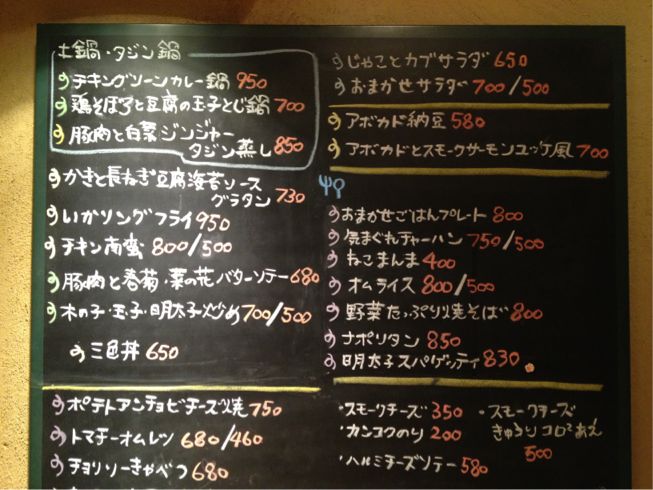 土鍋・タジン鍋
チキングリーンカレー鍋 950
鶏そぼろと豆腐の玉子とじ鍋 700
豚肉と白菜ジンジャー
タジン蒸し 850
かきと長ねぎ豆腐海苔ソース
グラタン 730
いかリングフライ 950
チキン南蛮 800/500
豚肉と春菊・菜の花バターソテー 680
木の子・玉子・明太子炒め 700/500
三色丼 650
ポテトアンチョビチーズ焼 750
トマチーオムレツ 680/460
チョリソーきゃべつ 680
じゃことカブサラダ 650
おまかせサラダ 700/500
アボカド納豆 580
アボカドとスモークサーモンユッケ風 700
おまかせごはんプレート 800
気まぐれチャーハン 750/500
ねこまんま 400
オムライス 800/500
野菜たっぷり焼そば 800
ナポリタン 850
明太子スパゲッティ 830
・スモークチーズ 350
・カンコクのり 200
・ハルミチーズソテー 580
・スモークチーズ
きゅうりコロコロあえ
500